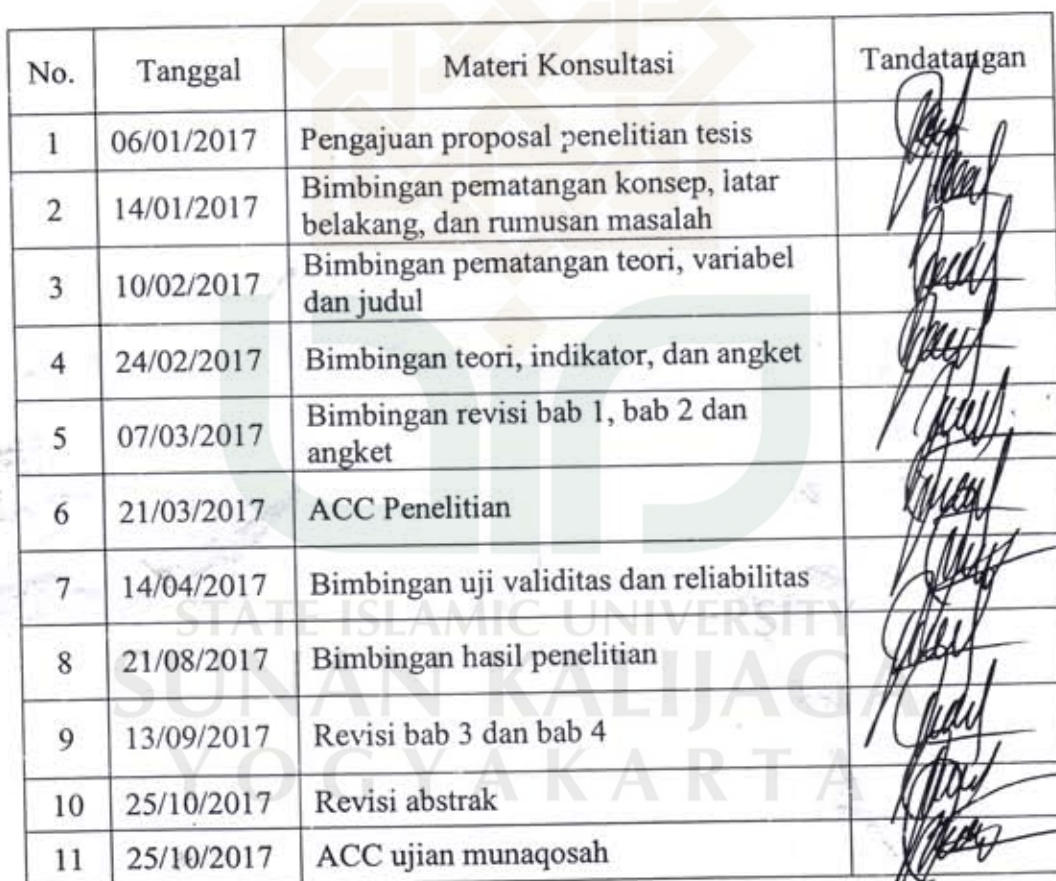 No. Tanggal Materi Konsultasi Tandatangan
1 06/01/2017 Pengajuan proposal penelitian tesis
2 14/01/2017 Bimbingan pematangan konsep, latar
belakang, dan rumusan masalah
3 10/02/2017 Bimbingan pematangan teori, variabel
dan judul
4 24/02/2017 Bimbingan teori, indikator, dan angket
5 07/03/2017 Bimbingan revisi bab 1, bab 2 dan
angket
6 21/03/2017 ACC Penelitian
7 14/04/2017 Bimbingan uji validitas dan reliabilitas
STATE ISLAMIC UNIVERSITY
8 21/08/2017 Bimbingan hasil penelitian
SUNAN KALIJAGA
9 13/09/2017 Revisi bab 3 dan bab 4
YOGYAKARTA
10 25/10/2017 Revisi abstrak
11 25/10/2017 ACC ujian munaqosah